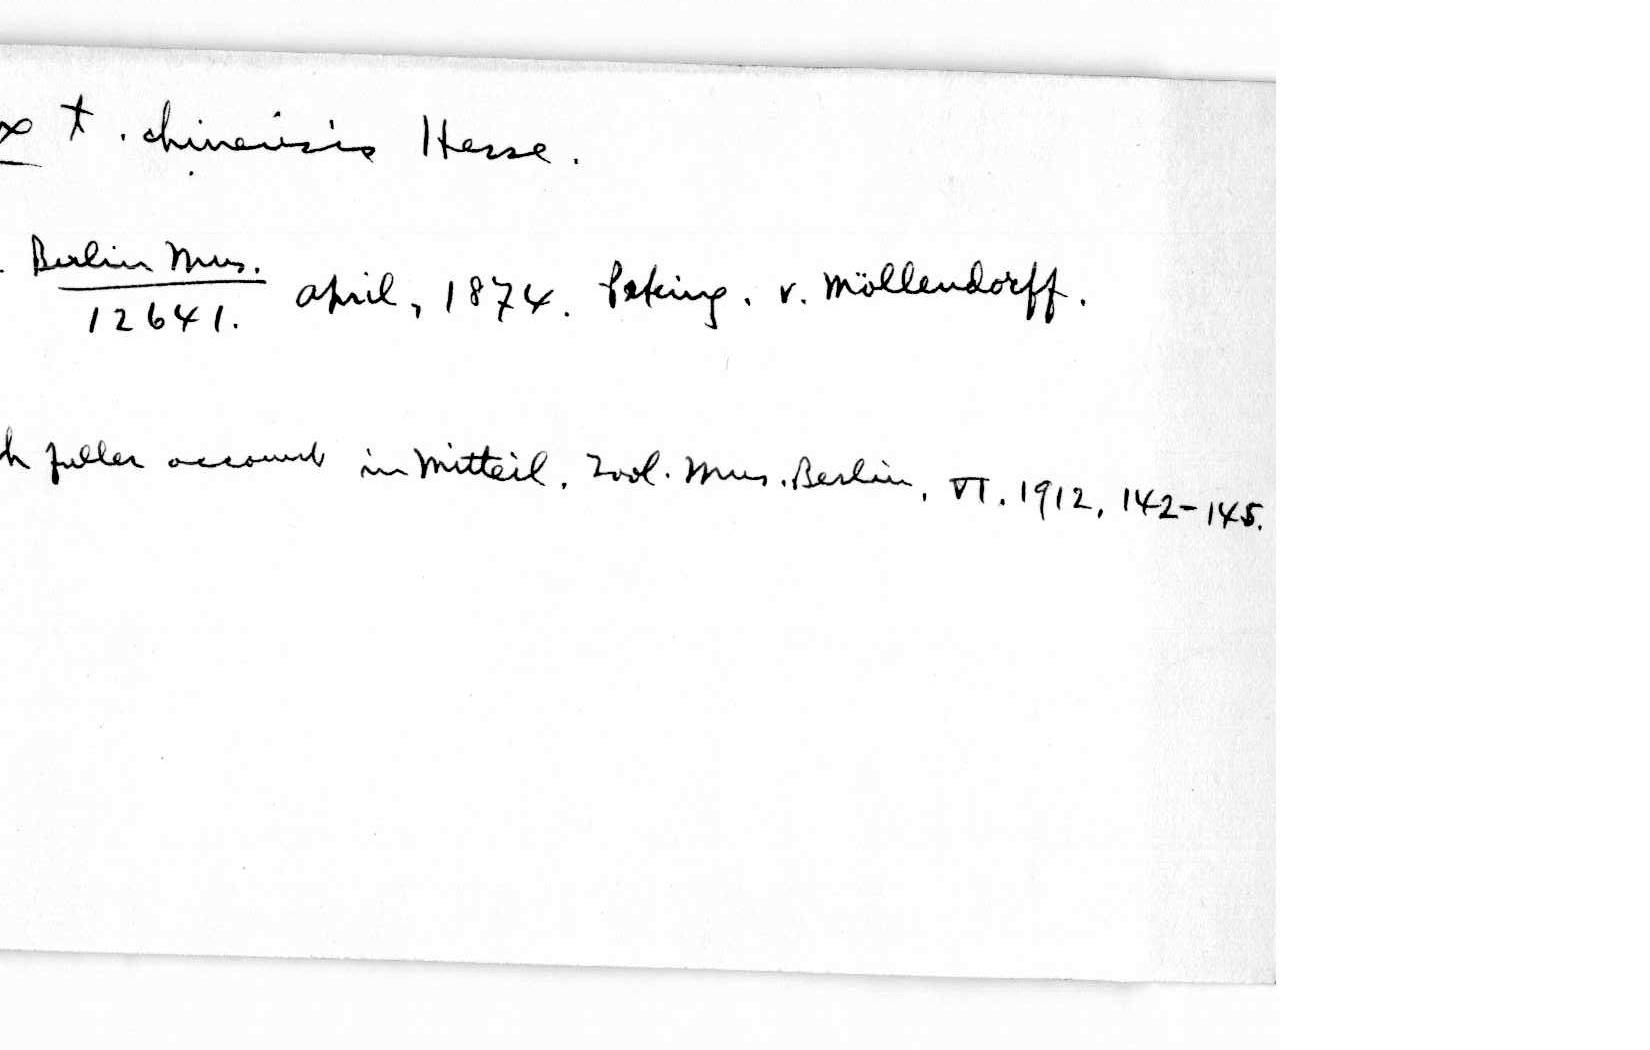 t. chinensis Hesse.
Berlin Mus.
12641. April, 1874. Peking. v. Möllendorff.
fuller account in Mitteil. Zool. Mus. Berlin, VI. 1912, 142-145.